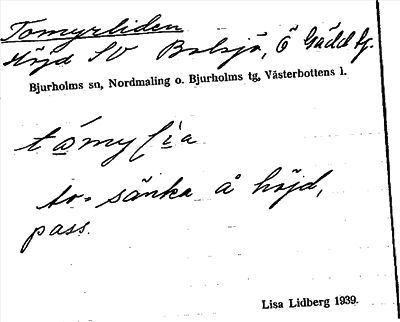 Tomyrliden
Höjd SV Balsjö, Ö Gädd tj.
Bjurholms sn, Nordmaling o. Bjurholms tg, Västerbottens l.
tómyrlia
to = sänka å höjd,
pass.
Lisa Lidberg 1939.